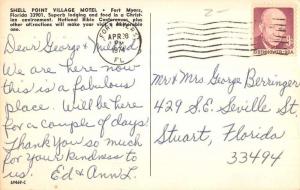 SHELL POINT VILLAGE MOTEL • Fort Myers,
Florida 33901. Superb lodging and food in a Christ-
ian environment. National Bible Conferences, plus
other attractions will make your visit a blessed one.
Dear George & Mildred
We are here now
this is a fabulous
place. Will be here
for a couple of days.
Thank you so much
for your kindness to
us. Ed & Ann L.
69669-C
APR 30
PM
1974
FL
Mr & Mrs George Berringer
429 S.E. Seville St.
Stuart, Florida
33494